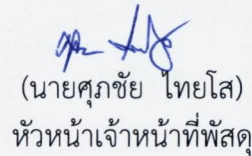 (นายศุภชัย ไทยโส)
หัวหน้าเจ้าหน้าที่พัสดุ